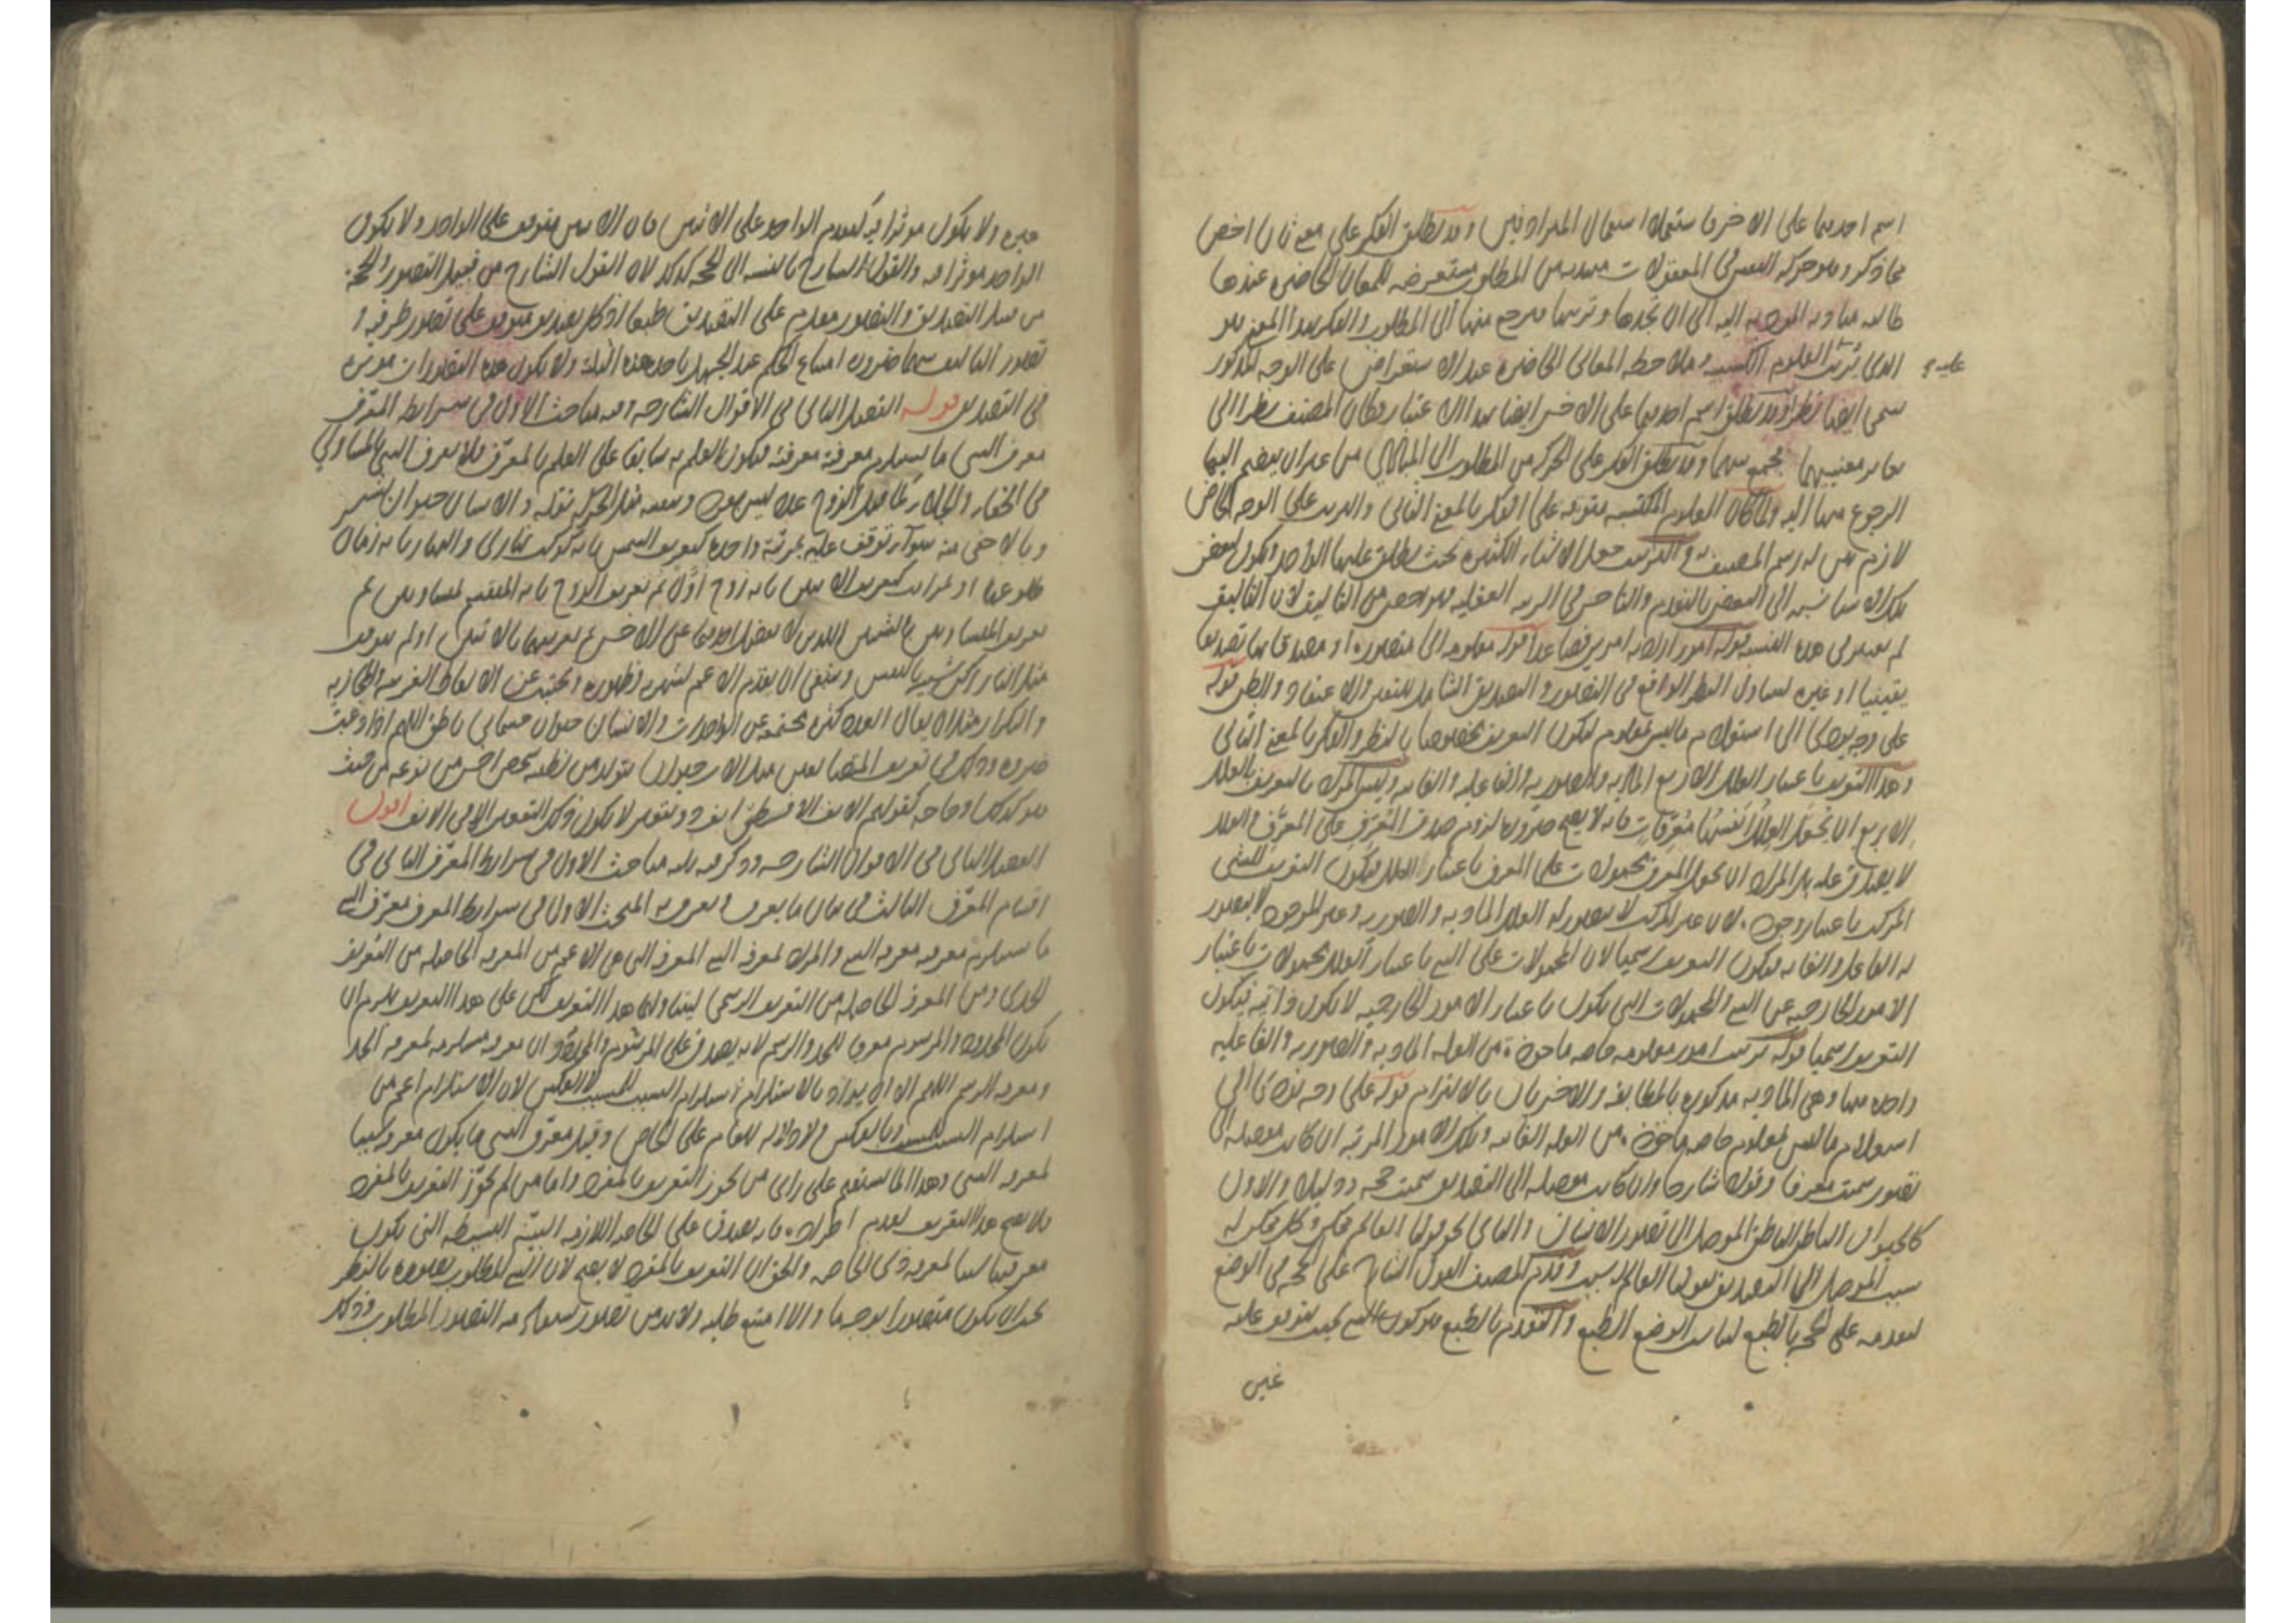 اسم احديهما على الاخر فاستعملا استعمال المترادفين وقد يطلق الفكر على معنى ثان اخص
مما ذكر وهو حركة النفس في المعقولات مبتدية من المطلوب مستعرضة للمعاني الحاضرة عندها
طالبة مباديه المودية اليه الى ان تجدها وترتبها فترجع منها الى المطلوب والفكر بهذا المعنى هو
الذي يترتب العلوم الكسبية وملاحظة المعاني الحاضرة عند الاستعراض على الوجه المذكور
عليه
يسمى ايضا نظرا وقد يطلق اسم احديهما على الاخر ايضا بهذا الاعتبار وكان المصنف نظر الى
معنييهما وقد يطلق الفكر على الحركة من المطلوب الى المبادي من غير ان ينضم اليها
الرجوع منها اليه ولما كان العلوم المكتسبة متوقفة على الفكر بالمعنى الثاني والترتيب على الوجه الخاص
لازم له رسم المصنف به والترتيب جعل الاشياء الكثيرة بحيث يطلق عليها الواحد ويكون لبعض
تلك الاشياء نسبة الى البعض بالتقدم والتاخر في الرتبة العقلية فهو اخص من التاليف لان التاليف
لم يعتبر فيه هذه النسبة قوله امور اراد به امرين فصاعدا قوله معلومة اي متصورة او مصدق بها تصديقا
يقينيا او غيره ليتناول النظر الواقع في التصور والتصديق الشامل لليقين والاعتقاد والظن قوله
على وجه يودي الى استعلام ما ليس بمعلوم ليكون التعريف مخصوصا بالنظر والفكر بالمعنى الثاني
وهذا التعريف باعتبار العلل الاربع المادية والصورية والفاعلية والغائية وليس المراد بالتعريف بالعلل
الاربع ان تجعل العلل انفسها معرفات فانه لا يصح ضرورة لزوم صدق المعرف على المعرف والعلل
لا يصدق عليه بل المراد ان يجعل المعرف محمولات على المعرف باعتبار العلل فيكون التعريف للشي
المركب باعتبار وجوده لان غير المركب لا يتصور له العلل المادية والصورية وغير الموجود لا يتصور
له الفاعل والغاية فيكون التعريف رسميا لان المحمولات على الشي باعتبار العلل محمولات باعتبار
الامور الخارجية عن الشي والمحمولات التي يكون باعتبار الامور الخارجية لا يكون ذاتية فيكون
التعريف رسميا قوله ترتيب امور معلومة خاصة ماخوذة من العلة المادية والصورية والفاعلية
واحدة منها وهي المادية مذكورة بالمطابقة والاخريان بالالتزام قوله على وجه يودي الى
استعلام ما ليس بمعلوم خاصة ماخوذة من العلة الغائية وتلك الامور المرتبة ان كانت موصلة الى
تصور سميت معرفا وقولا شارحا وان كانت موصلة الى التصديق سميت حجة ودليلا والاول
كالحيوان الناطق الموصل الى تصور الانسان والثاني نحو قولنا العالم ممكن وكل ممكن له
سبب الموصل الى التصديق بقولنا العالم له سبب وقدم المصنف القول الشارح على الحجة في الوضع
لتقدمه على الحجة بالطبع ليناسب الوضع الطبع والتقدم بالطبع هو كون الشي بحيث يتوقف عليه
غيره
غيره ولا يكون موثرا فيه كتقدم الواحد على الاثنين فان الاثنين متوقف على الواحد ولا يكون
الواحد موثرا فيه والقول الشارح بالنسبة الى الحجة كذلك لان القول الشارح من قبيل التصور والحجة
من قبيل التصديق والتصور مقدم على التصديق طبعا اذ كل تصديق متوقف على تصور طرفيه و
تصور التاليف بينهما ضرورة امتناع الحكم عند الجهل باحد هذه الثلثة ولا يكون هذه التصورات موثرة
في التصديق قوله الفصل الثاني في الاقوال الشارحة وفيه مباحث الاول في شرايط المعرف
معرف الشي ما يستلزم معرفته معرفته فيكون العلم به سابقا على العلم بالمعرف فلا يعرف الشي بالمساوي
في الخفاء والجلاء كما يقال الزوج عدد ليس بفرد وبنفسه مثل الحركة نقلة والانسان حيوان بشر
وبالاخفى منه سواء توقف عليه بمرتبة واحدة كتعريف الشمس بانه كوكب نهاري والنهار بانه زمان
طلوعها او بمراتب كتعريف الاثنين بانه زوج اول ثم تعريف الزوج بانه المنقسم بمتساويين ثم
تعريف المتساويين بالشيئين اللذين لا يفضل احديهما على الاخر ثم تعريفهما بالاثنين او لم يتوقف
مثل النار ركن شبيه بالنفس وينبغي ان يقدم الاعم لشهرته وظهوره ويجتنب عن الالفاظ الغريبة والمجازية
والتكرار مثل ان يقال العدد كثرة مجتمعة من الواحدات والانسان حيوان جسماني ناطق اللهم اذا دعت
ضرورة وذلك في تعريف المتضايفين مثل الاب حيوان يتولد من نطفته شخص اخر من نوعه من حيث
هو كذلك او حاجة كقولهم الانف الافطس انف ذو تقعير لا يكون ذلك التقعير الا في الانف اقول
الفصل الثاني في الاقوال الشارحة وذكر فيه ثلثة مباحث الاول في شرايط المعرف الثاني في
اقسام المعرف الثالث في بيان ما يعرف ويعرف به المبحث الاول في شرايط المعرف معرف الشي
ما يستلزم معرفته معرفة الشي والمراد بمعرفة الشي المعرفة التي هي الاعم من المعرفة الحاصلة من التعريف
الحدي ومن المعرفة الحاصلة من التعريف الرسمي ليتناولهما هذا التعريف لكن على هذا التعريف يلزم ان
يكون المحدود والمرسوم معرفا للحد والرسم لانه يصدق على المرسوم والمحدود ان معرفته مستلزمة لمعرفة الحد
ومعرفة الرسم اللهم الا ان يراد بالاستلزام استلزام السبب للمسبب لا العكس لان الاستلزام اعم من
استلزام السبب للمسبب وبالعكس ولا دلالة للعام على الخاص وقيل معرف الشي ما يكون معرفته سببا
لمعرفة الشي وهذا انما يستقيم على راي من يجوز التعريف بالمفرد واما من لم يجوز التعريف بالمفرد
فلا يصح هذا التعريف لعدم اطراده فانه يصدق على الخاصة اللازمة البينة البسيطة التي يكون
معرفتها سببا لمعرفة ذي الخاصة والحق ان التعريف بالمفرد لا يصح لان الشي المطلوب تصوره بالنظر
يجب ان يكون متصورا بوجه ما والا امتنع طلبه ولابد من تصور يستفاد منه التصور المطلوب وذلك